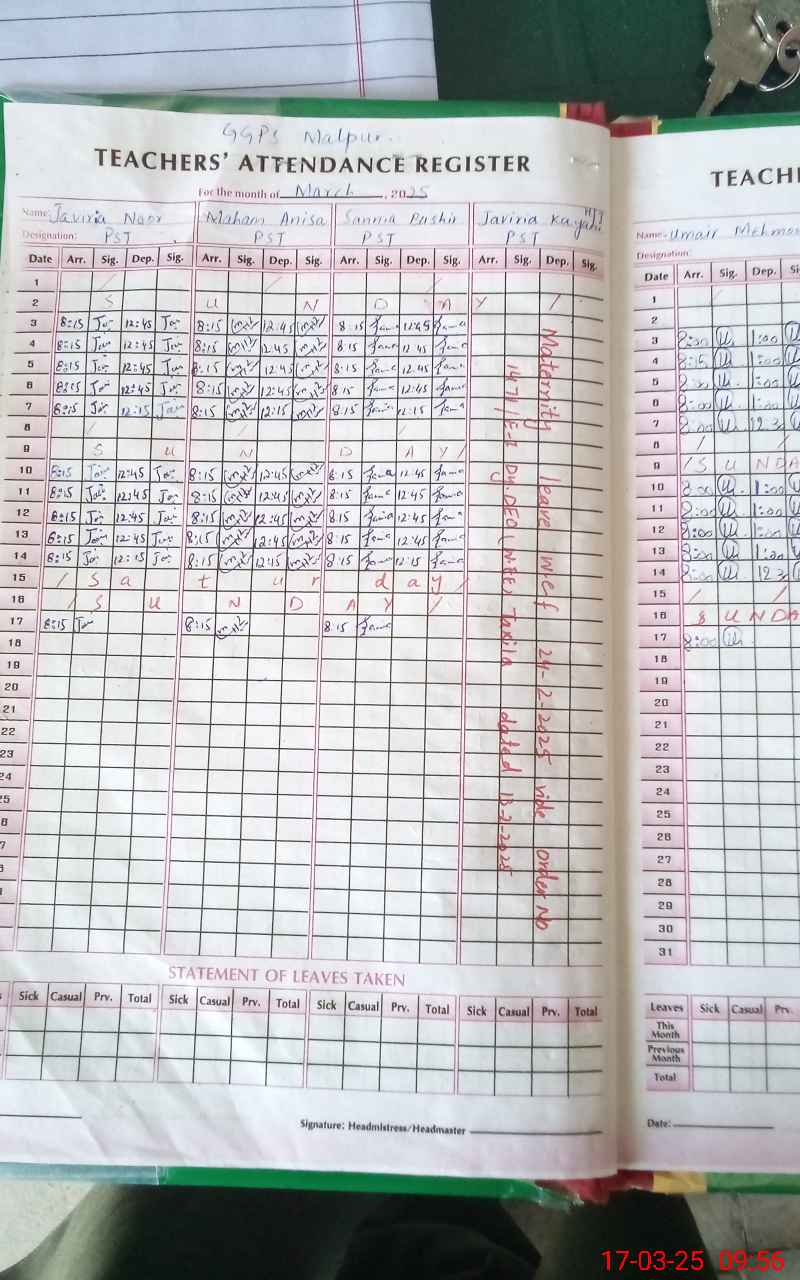 GGPS Malpur.
TEACHERS' ATTENDANCE REGISTER
For the month of March, 2025
Name: Javiria Noor Maham Anisa Sannia Bashir Javiria Kayani
Designation: PST PST PST PST
Date Arr. Sig. Dep. Sig. Arr. Sig. Dep. Sig. Arr. Sig. Dep. Sig. Arr. Sig. Dep. Sig.
1
2 S U N D A Y
3 8:15 12:45 8:15 12:45 8:15 12:45
4 8:15 12:45 8:15 12:45 8:15 12:45
5 8:15 12:45 8:15 12:45 8:15 12:45
6 8:15 12:45 8:15 12:45 8:15 12:45
7 8:15 12:15 8:15 12:15 8:15 12:15
8
9 S U N D A Y
10 8:15 12:45 8:15 12:45 8:15 12:45
11 8:15 12:45 8:15 12:45 8:15 12:45
12 8:15 12:45 8:15 12:45 8:15 12:45
13 8:15 12:45 8:15 12:45 8:15 12:45
14 8:15 12:15 8:15 12:15 8:15 12:15
15 S a t u r d a y
16 S U N D A Y
17 8:15 8:15 8:15
18
19
20
21
22
23
24
Maternity leave w.e.f 24-2-2025 vide order No
1471/E-I Dy.DEO (W.EE) Taxila dated 13-2-2025
STATEMENT OF LEAVES TAKEN
Sick Casual Prv. Total Sick Casual Prv. Total Sick Casual Prv. Total Sick Casual Prv. Total
Signature: Headmistress/Headmaster
TEACH
Name: Umair Mehmo
Designation:
Date Arr. Sig. Dep. S
1
2
3 8:00 1:00
4 8:15 1:00
5 8:00 1:00
6 8:00 1:00
7 8:00 12:3
8
9 S U N D A
10 8:00 1:00
11 8:00 1:00
12 8:00 1:00
13 8:00 1:00
14 8:00 12:3
15
16 S U N D A
17 8:00
18
19
20
21
22
23
24
25
26
27
28
29
30
31
Leaves Sick Casual Prv.
This Month
Previous Month
Total
Date:
17-03-25 09:56